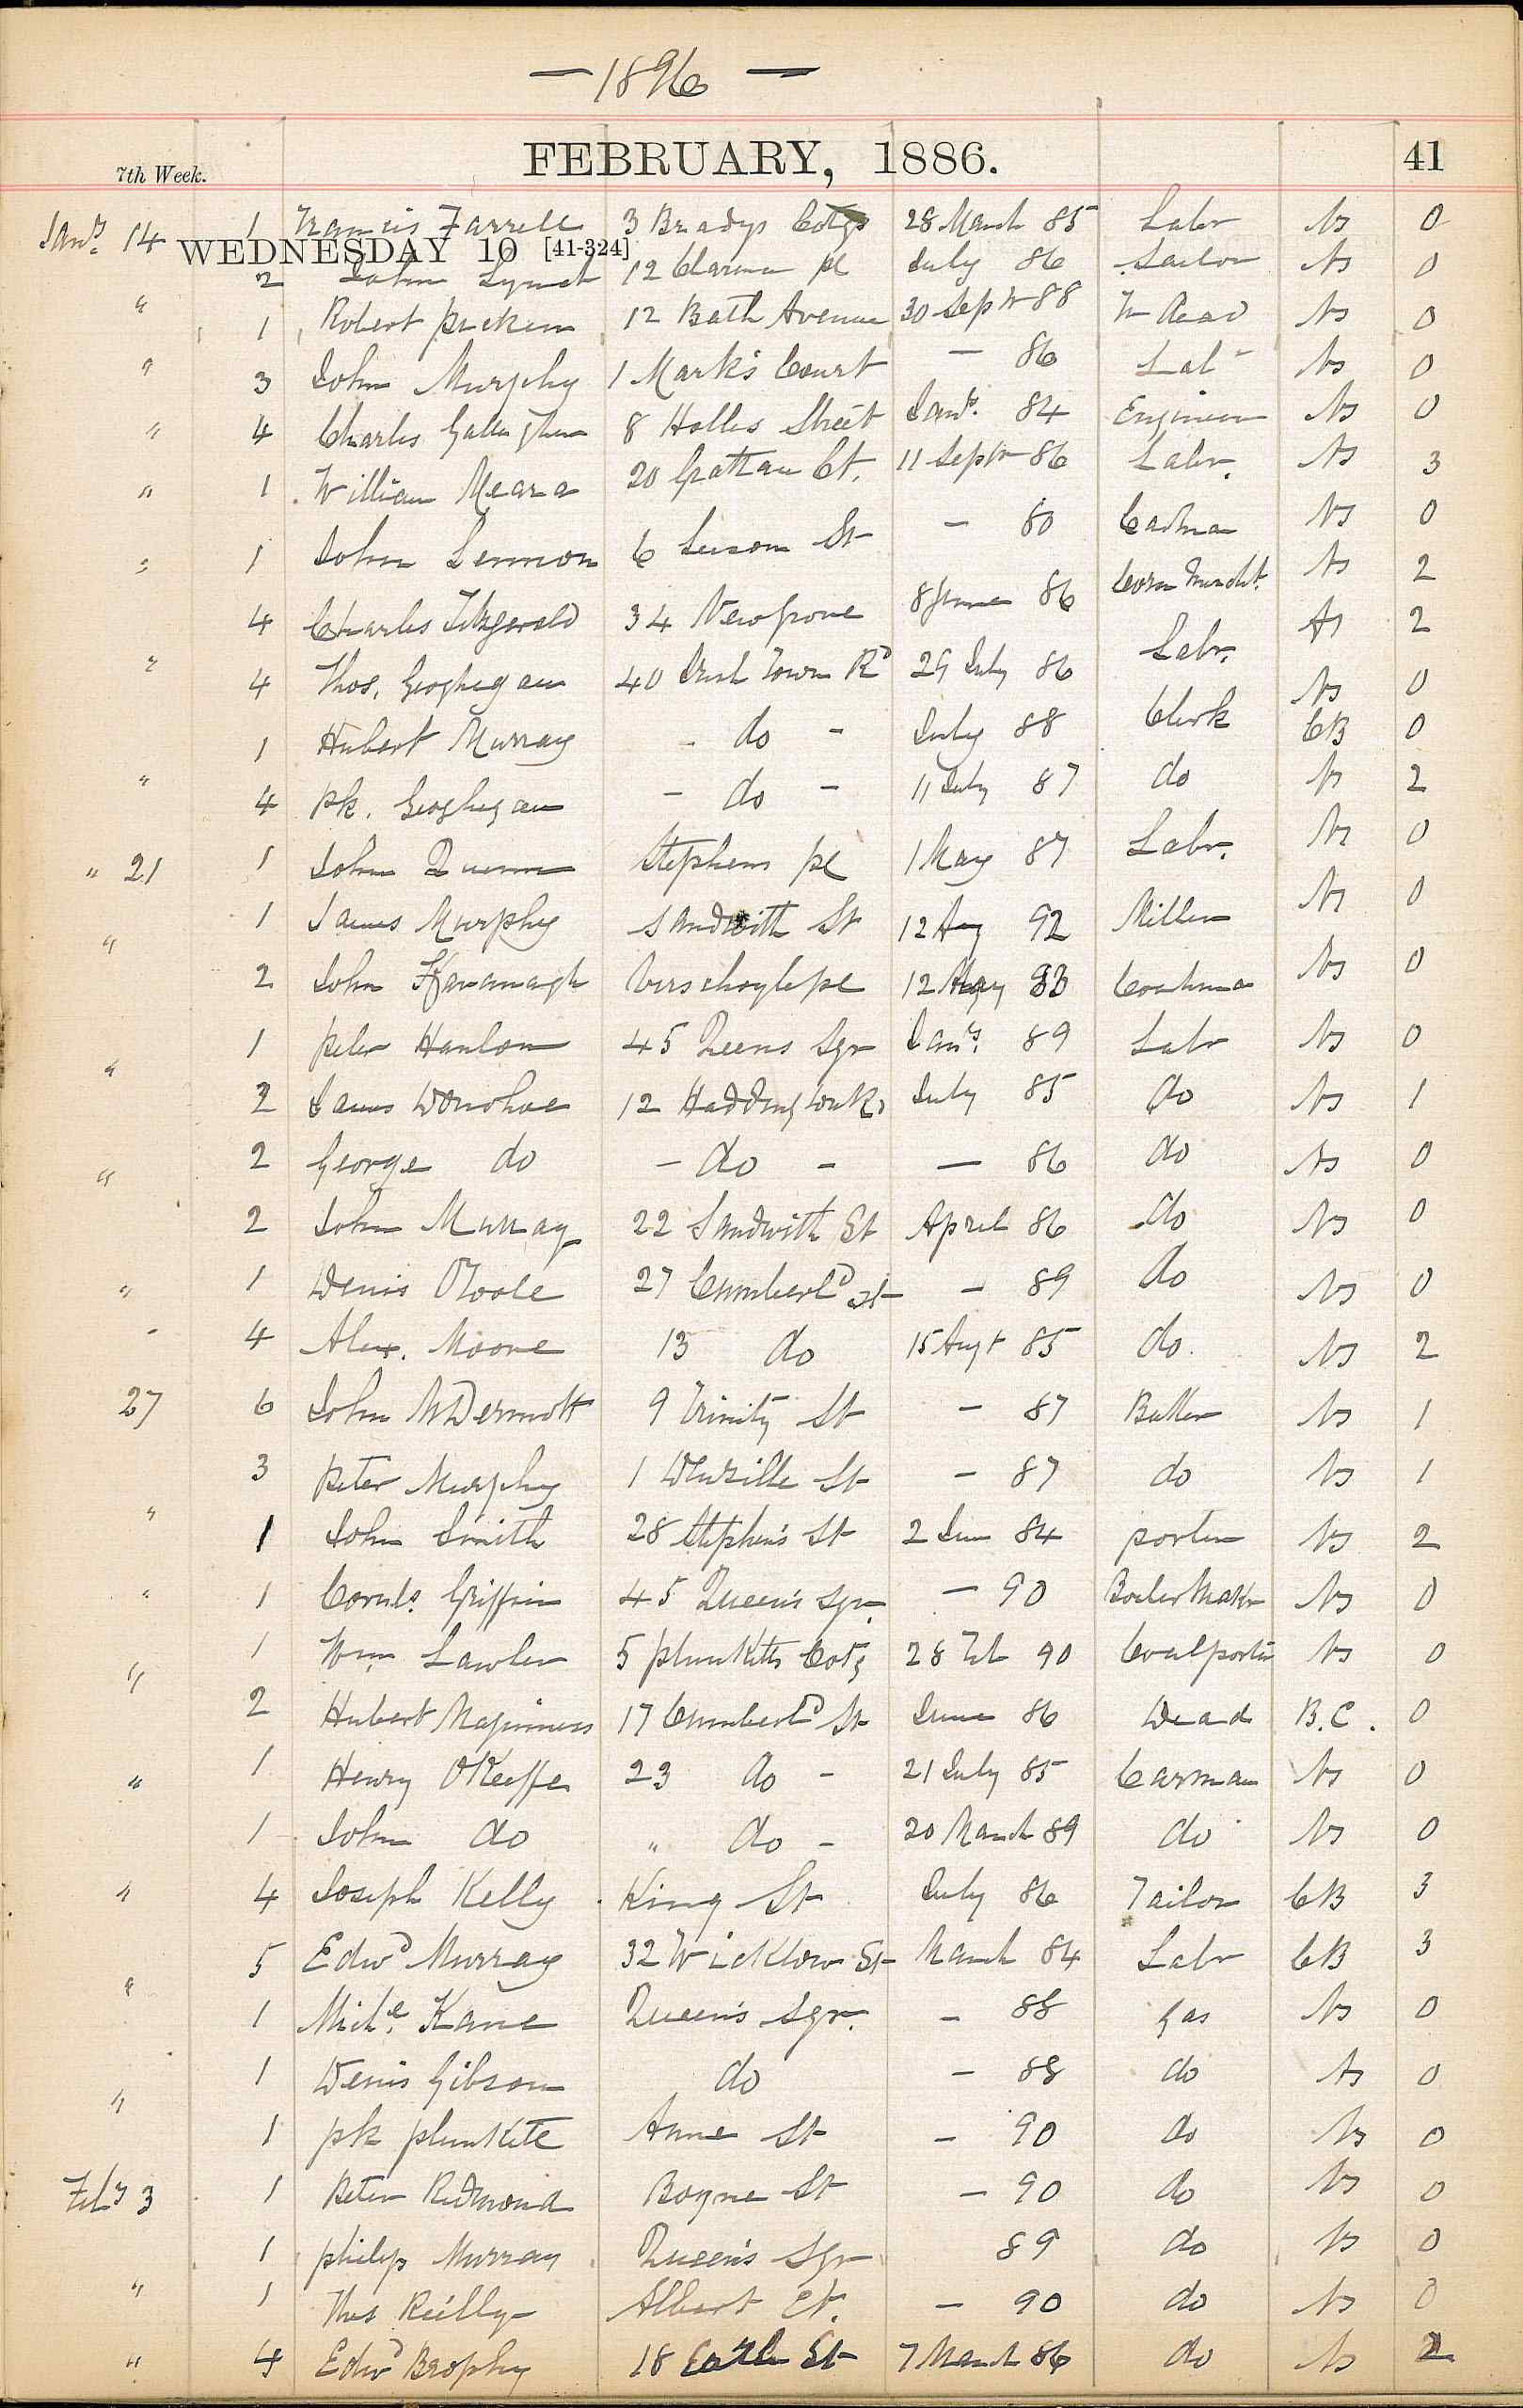 — 1896 —
7th Week. FEBRUARY, 1886. 41
Jany. 14 1 Francis Farrell 3 Bradys Cotgs 28 March 85 Labr Ns 0
WEDNESDAY 10 [41-324]
2 John Lynch 12 Clarence pl July 86 Sailor Ns 0
" 1 Robert 12 Bath Avenue 30 Septr 88 Ns 0
" 3 John Murphy 1 Mark's Court — 86 Labr Ns 0
" 4 Charles Gallagher 8 Holles Street Jany. 84 Engineer Ns 0
" 1 William Meara 20 Grattan Ct. 11 Septr 86 Labr. Ns 3
" 1 John Lennon 6 Leeson St — 80 Ns 0
4 Charles Fitzgerald 34 Newgrove 8 June 86 Corn Mercht. Ns 2
" 4 Thos. Geoghegan 40 Irish Town Rd 29 July 86 Labr. Ns 2
1 Hubert Murray - do - July 88 Clerk Ns 0
CB 0
" 4 Pk. Geoghegan — do — 11 July 87 do Ns 2
" 21 1 John Quinn Stephens pl 1 May 87 Labr. Ns 0
" 1 James Murphy Sandwith St 12 Aug 92 Miller Ns 0
2 John Kavanagh Verschoyle pl 12 May 83 Coachman Ns 0
" 1 Peter Hanlon 45 Queens Sqr Jany. 89 Labr Ns 0
2 James Donohoe 12 Haddington Rd July 85 do Ns 1
" 2 George do — do — — 86 do Ns 0
2 John Murray 22 Sandwith St April 86 do Ns 0
" 1 Denis O'Toole 27 Cumberld St — 89 do Ns 0
" 4 Alex. Moore 13 do 15 Augt 85 do. Ns 2
27 6 John McDermott 9 Trinity St — 87 Butler Ns 1
3 Peter Murphy 1 Denzille St — 87 do Ns 1
" 1 John Smith 28 Stephen's St 2 Jun 84 porter Ns 2
" 1 Cornls. Griffin 45 Queen's Sqr. — 90 Boiler Maker Ns 0
" 1 Wm Lawler 5 plunketts Cotgs 28 Feb 90 Coalporter Ns 0
2 Hubert Maginness 17 Cumberld St June 86 Dead B.C. 0
" 1 Henry O'Keeffe 23 do — 21 July 85 Carman Ns 0
1 John do " do — 20 March 89 do Ns 0
" 4 Joseph Kelly King St July 86 Tailor CB 3
5 Edwd Murray 32 Wicklow St March 84 Labr CB 3
" 1 Michl. Kane Queen's Sqr. — 88 gas Ns 0
1 Denis Gibson do — 88 do Ns 0
" 1 pk plunkete Anne St — 90 do Ns 0
Feby 3 1 Peter Redmond Boyne St — 90 do Ns 0
1 philip Murray Queen's Sqr 89 do Ns 0
" 1 Thos Reilly Albert Ct. — 90 do Ns 0
" 4 Edwd Brophy 18 St 7 March 86 do Ns 2